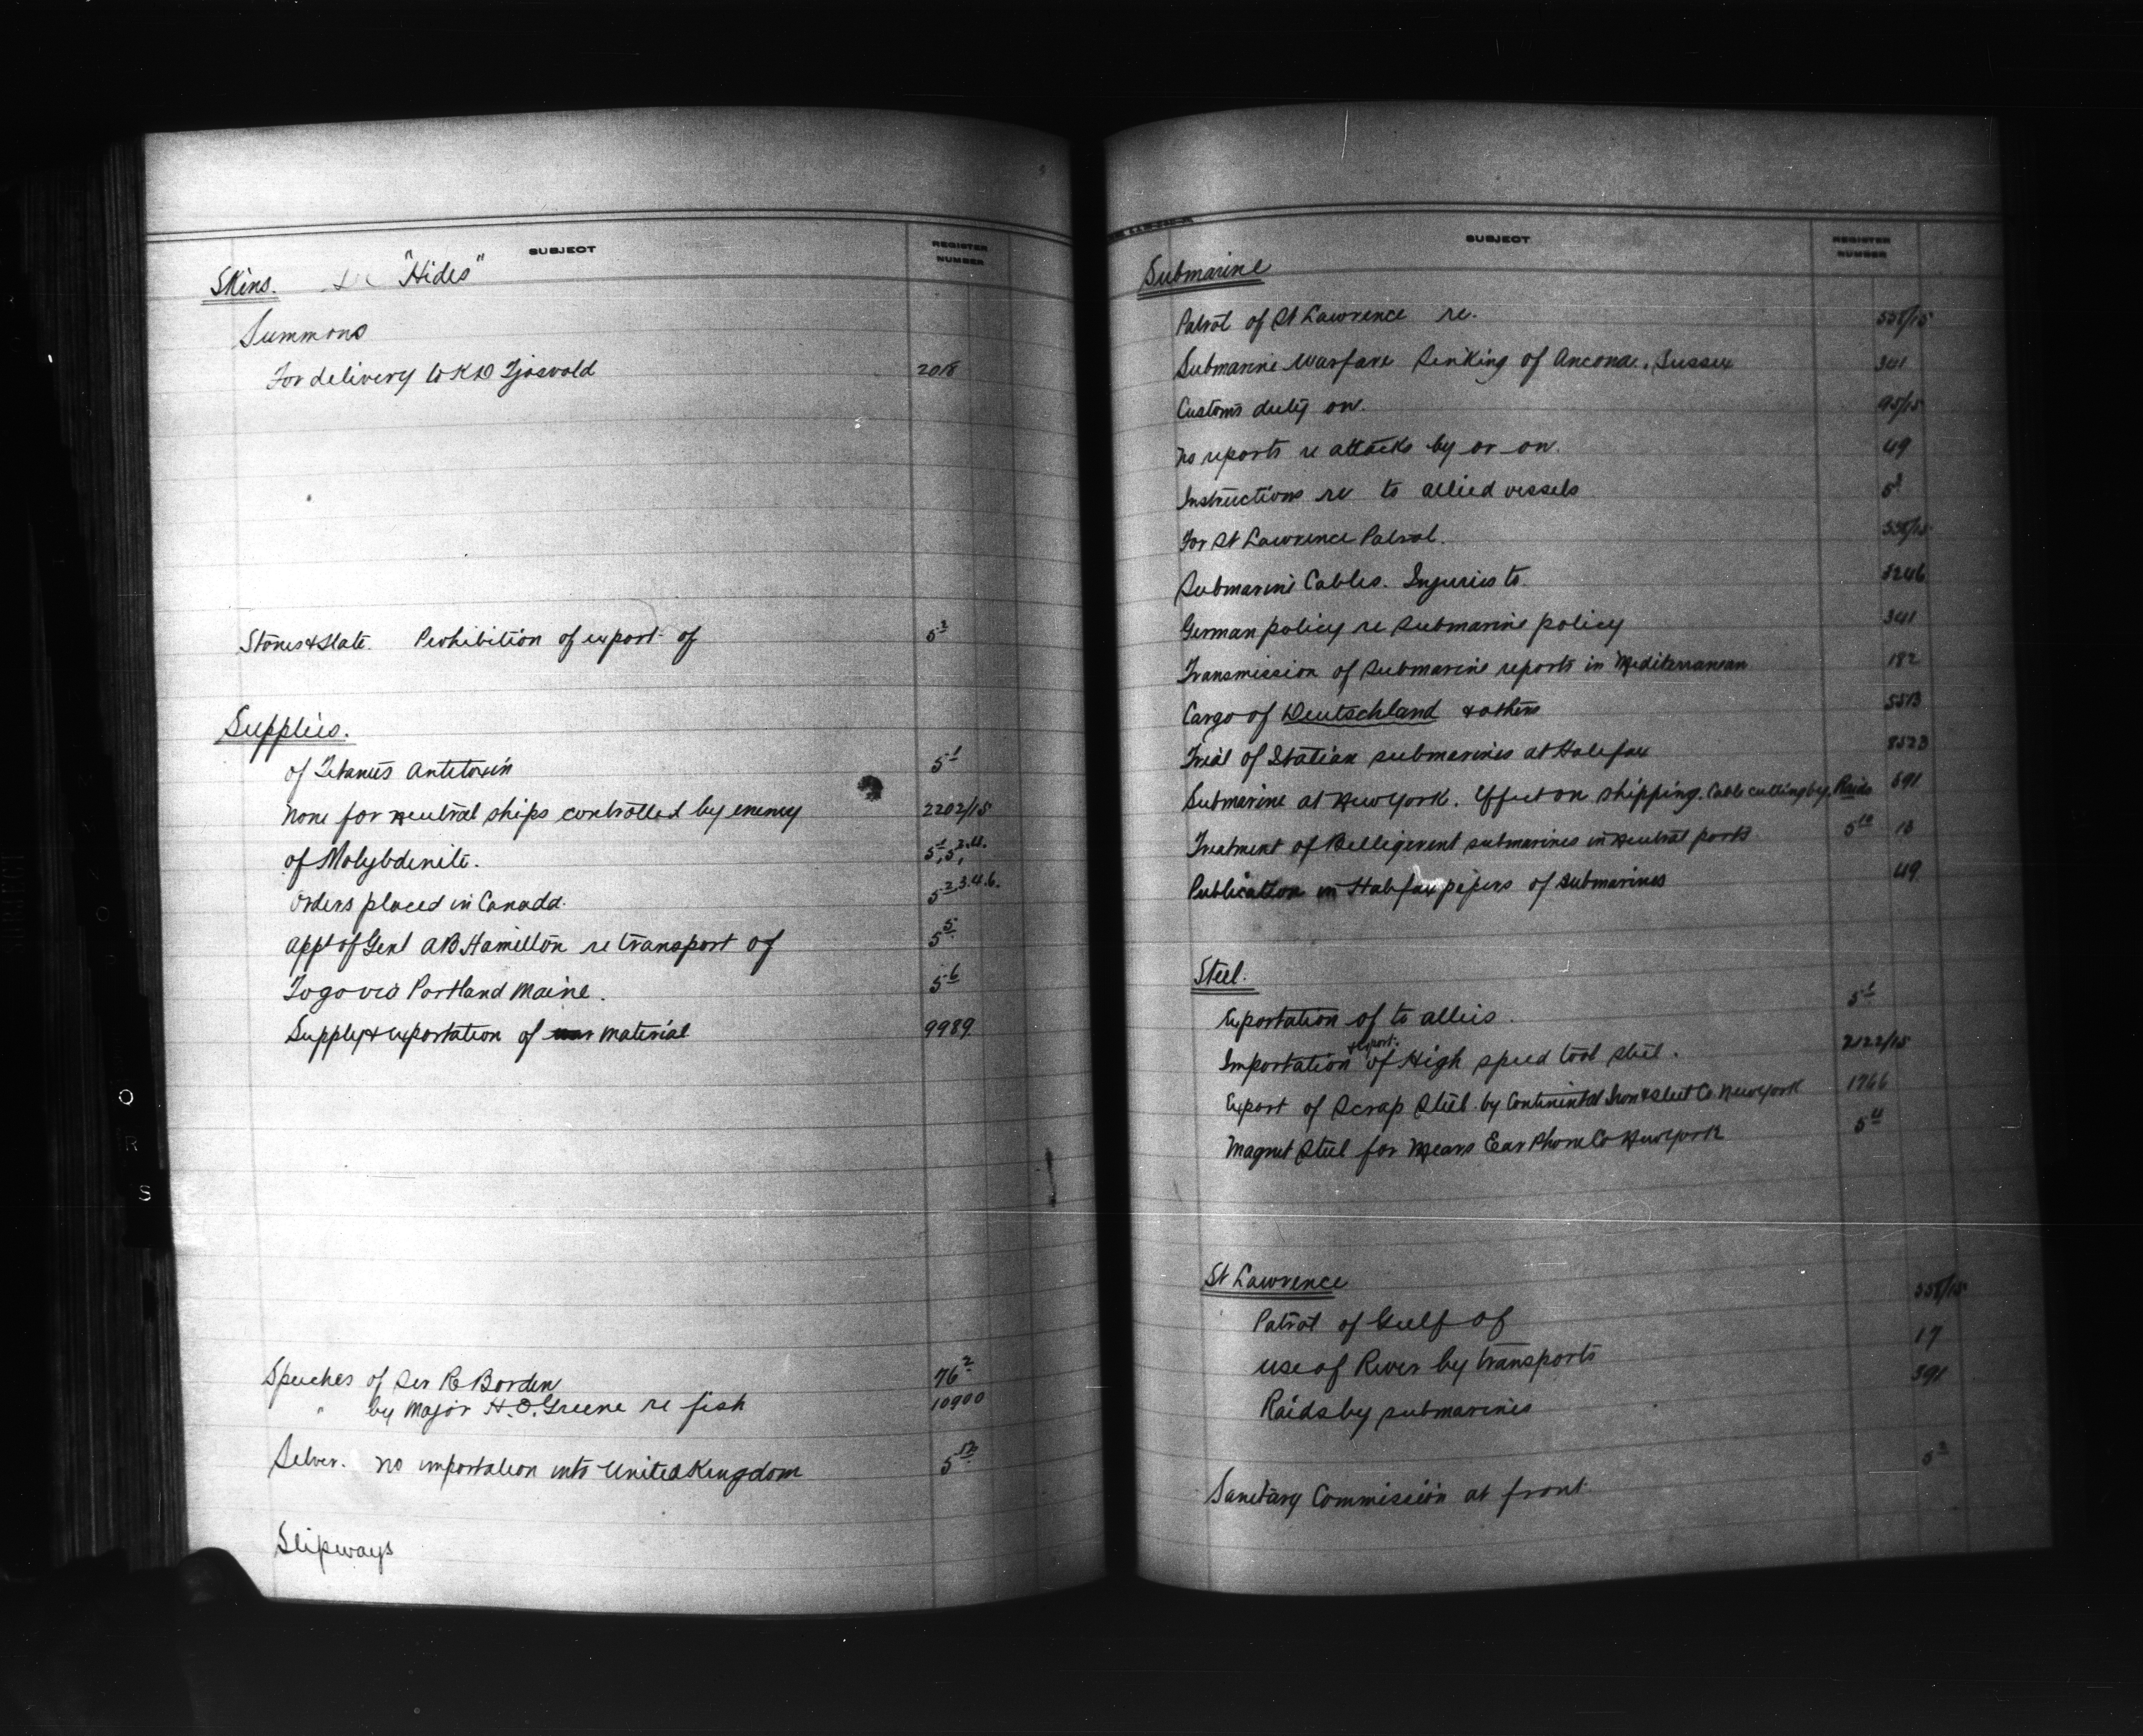 SUBJECT
REGISTER NUMBER
Skins. "Hides"
Summons
For delivery to K D Tjosvold 2018
Stones & Slate. Prohibition of export of 5-3
Supplies.
of Tetanus Antitoxin 5-1
None for neutral ships controlled by enemy 2202/15
of Molybdenite. 5-1, 5-3.4.
Orders placed in Canada. 5-2.3.4.6.
appt of Genl AB Hamilton re transport of 5-5
To go via Portland Maine. 5-6
Supply & exportation of war material 9989
Speeches of Sir R Borden 76-2
" by Major H.O. Greene re fish 10900
Silver. No importation into United Kingdom 5-12
Slipways
SUBJECT
REGISTER NUMBER
Submarine
Patrol of St Lawrence re. 558/15
Submarine Warfare Sinking of Ancona., Sussex 341
Customs duty on. 95/15
No reports re attacks by or on. 49
Instructions re to allied vessels 5
For St Lawrence Patrol. 558/15
Submarine Cables. Injuries to. 3246
German policy re submarine policy 341
Transmission of submarine reports in Mediterranean 182
Cargo of Deutschland & others 5513
Trial of Italian submarines at Halifax 8523
Submarine at New York. Effect on shipping. Cable cutting by, Raids 391
Treatment of Belligerent submarines in neutral ports 5-10 13
Publication in Halifax papers of submarines 49
Steel.
Exportation of to allies. 5-1
Importation & export. of High speed tool steel. 2122/15
Export of Scrap Steel by Continental Iron & Steel Co New York 1766
Magnet Steel for Mears Ear Phone Co New York 5-4
St Lawrence
Patrol of Gulf of 558/15
use of River by transports 17
Raids by submarines 391
Sanitary Commission at front 5-2